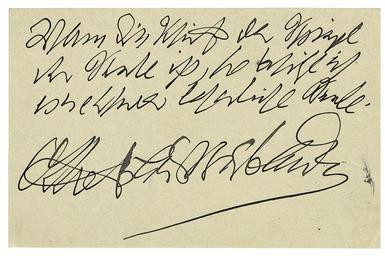 Wenn die Schrift der Spiegel
der Seele ist, so besitze ich
eine schwer leserliche Seele.